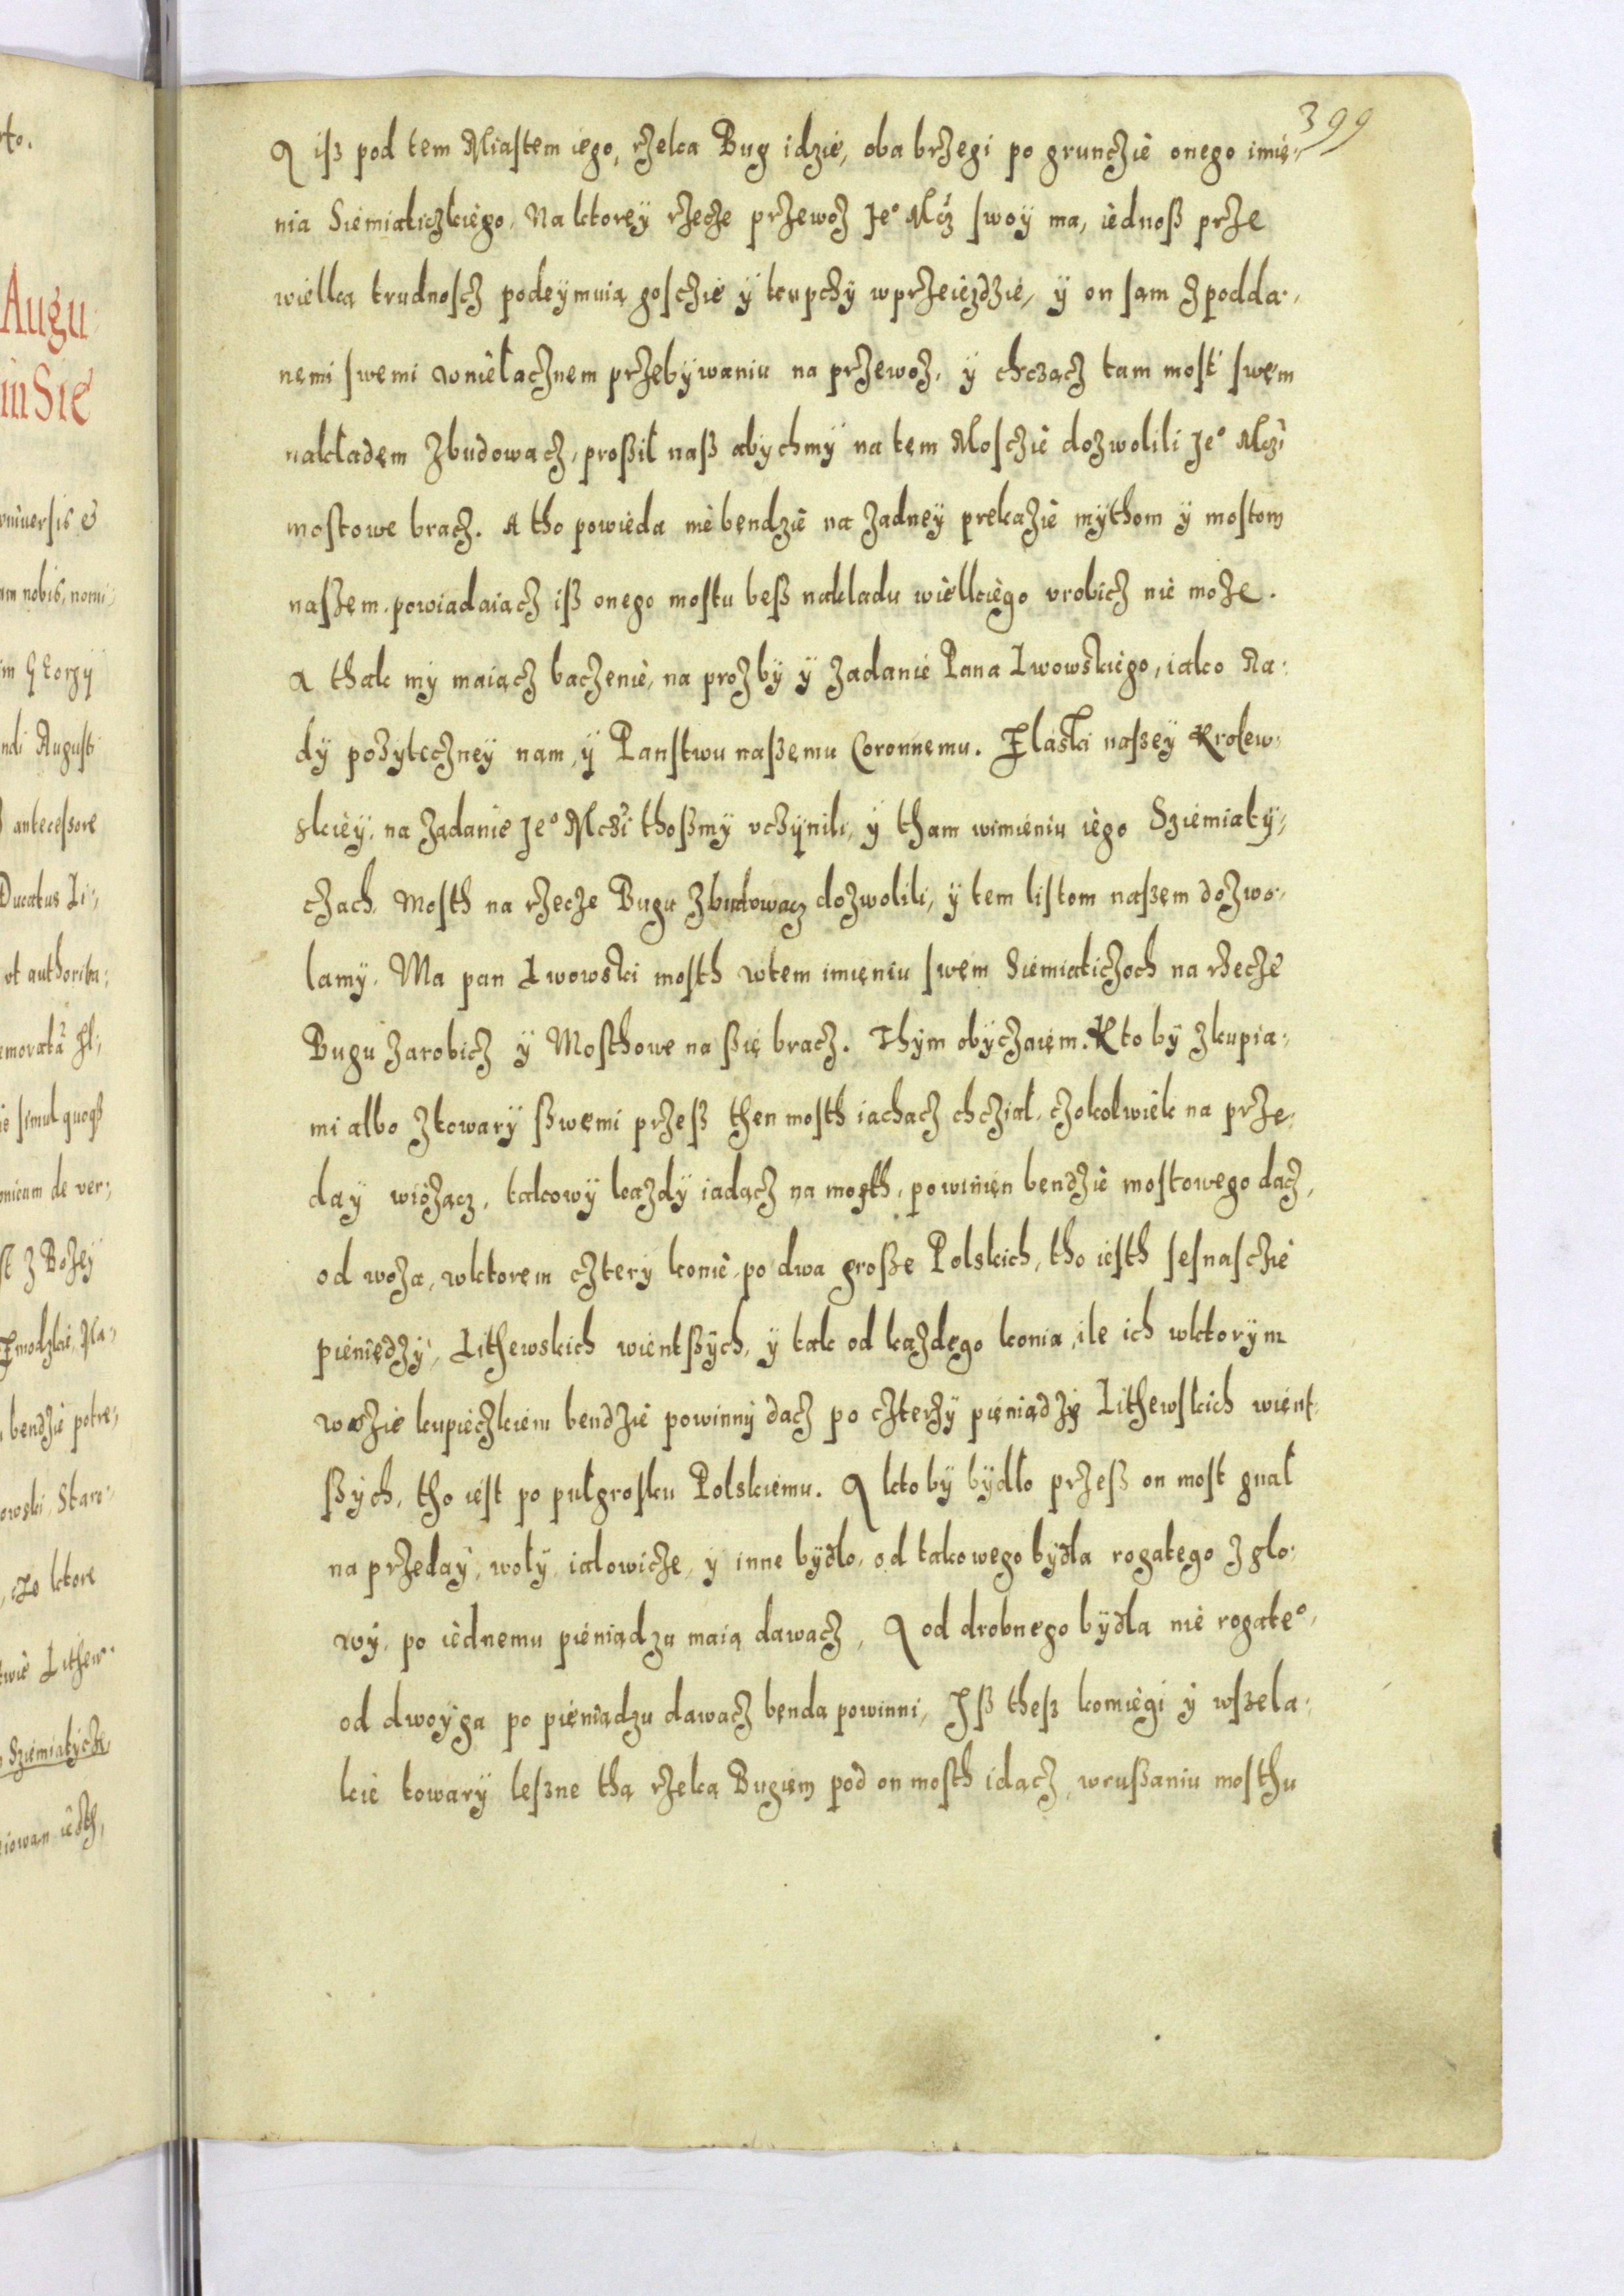 399
A isz pod tem Miastem iego, rzeka Bug idzie, oba brzegi po grunczie onego imie-
nia Siemiaticzkiego. Na ktorey rzecze przewoz Jeo Mcz swoy ma, iednosz prze
wielką trudnoscz podeymuią goscżie y kupczy wprzeiezdzie, y on sam z podda-
nemi swemi wniełacznem przebywaniu na przewoz, y chczącz tam most swem
nakładem zbudowacz, prosził nasz abychmy na tem Moscżie dozwolili Jeo Mczi
mostowe bracz. A tho powieda nie bendzie na zadney prekazie mythom y mostom
naszem powiadaiącz isz onego mostu besz nakladu wielkiego vrobicz nie może.
A thak my maiącz baczenie, na prozby y zadanie Pana Lwowskiego, iako Ra-
dy pożyteczney nam, y Panstwu naszemu Coronnemu. Złaski naszey Krolew-
skiey, na zadanie Jeo Mczi thoszmy vczynili, y tham wimieniu iego Sziemiaty-
czach, Mosth na rzecze Bugu zbudowacz dozwolili, y tem listem naszem dozwo-
lamy. Ma pan Lwowski mosth wtem imieniu swem Siemiaticzoch na rzecze
Bugu zarobicz y Mosthowe na szię bracz. Thym obyczaiem. Kto by zkupia-
mi albo ztowary szwemi przesz then mosth iachacz chcział, czokolwiek na prze-
day wiożącz, takowy kazdy iadącz na mosth, powinien bendzie mostowego dacz,
od woza, wktorem cztery konie, po dwa grosze Polskich, tho iesth sesnasczie
pieniędzy, Lithewskich wientszych, y tak od kazdego konia, ile ich wktorym
wozie kupieczkiem bendzie powinny dacz po czterzy pieniądzy Lithewskich wient-
szych, tho iest po pułgrosku Polskiemu. A kto by bydło przesz on most gnał
na przeday, woły, iałowicze, y inne bydło, od takowego bydła rogatego z glo-
wy, po iednemu pieniądzu maią dawacz, A od drobnego bydla nie rogateo,
od dwoyga po pieniądzu dawacz benda powinni, Isz thesz komiegi y wszela-
kie towary leszne tha rzeką Bugiem pod on mosth idacz, wruszaniu mosthu